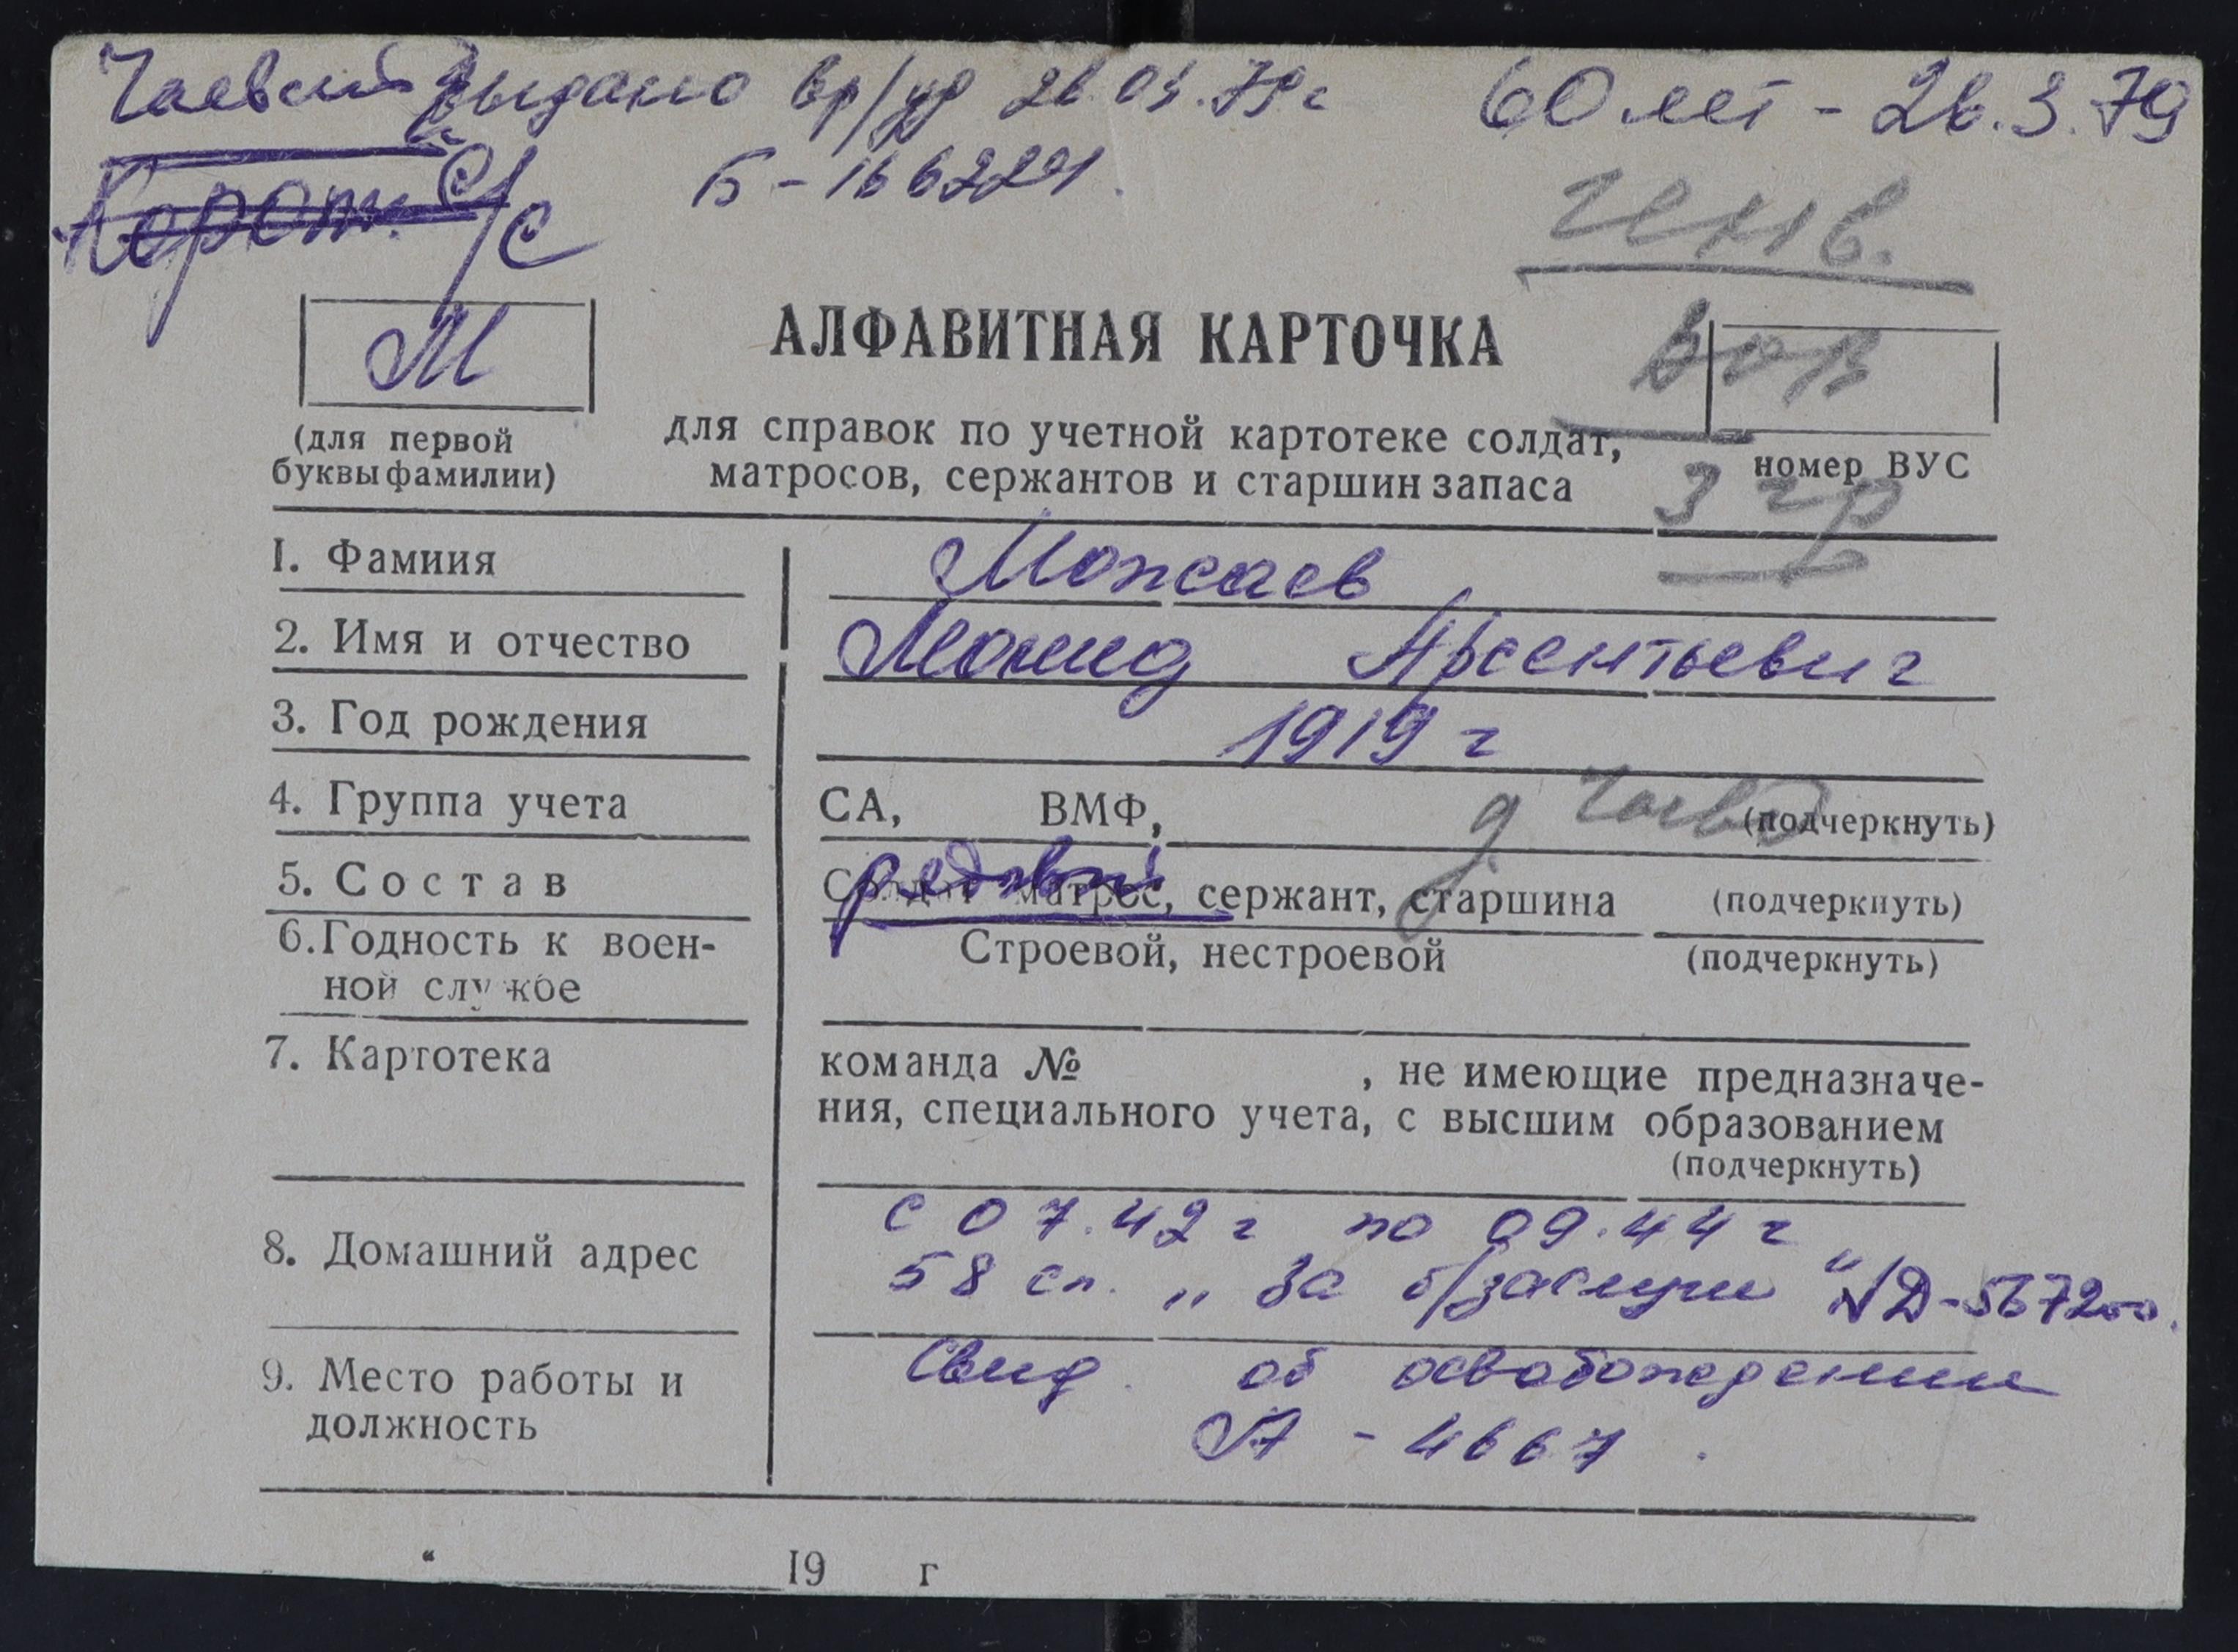 Чаевский выдано вр/уд 26.03.79г 60 лет - 26.3.79
Корот. с/с Б - 166221.
инв.
М
АЛФАВИТНАЯ КАРТОЧКА
ВОВ
(для первой
буквы фамилии)
для справок по учетной картотеке солдат,
матросов, сержантов и старшин запаса
номер ВУС
3 гр
1. Фамиия Можаев
2. Имя и отчество Леонид Арсентьевич
3. Год рождения 1919 г
4. Группа учета СА, ВМФ, (подчеркнуть)
д. Чаево
5. Состав Солдат матрос, сержант, старшина (подчеркнуть)
рядовой
6. Годность к воен-
ной службе
Строевой, нестроевой (подчеркнуть)
7. Картотека
команда № , не имеющие предназначе-
ния, специального учета, с высшим образованием
(подчеркнуть)
8. Домашний адрес
с 07.42 г по 09.44 г
58 сп. „За б/заслуги" Д-567200.
9. Место работы и
должность
Свид. об освобождении
А - 4667.
" 19 г